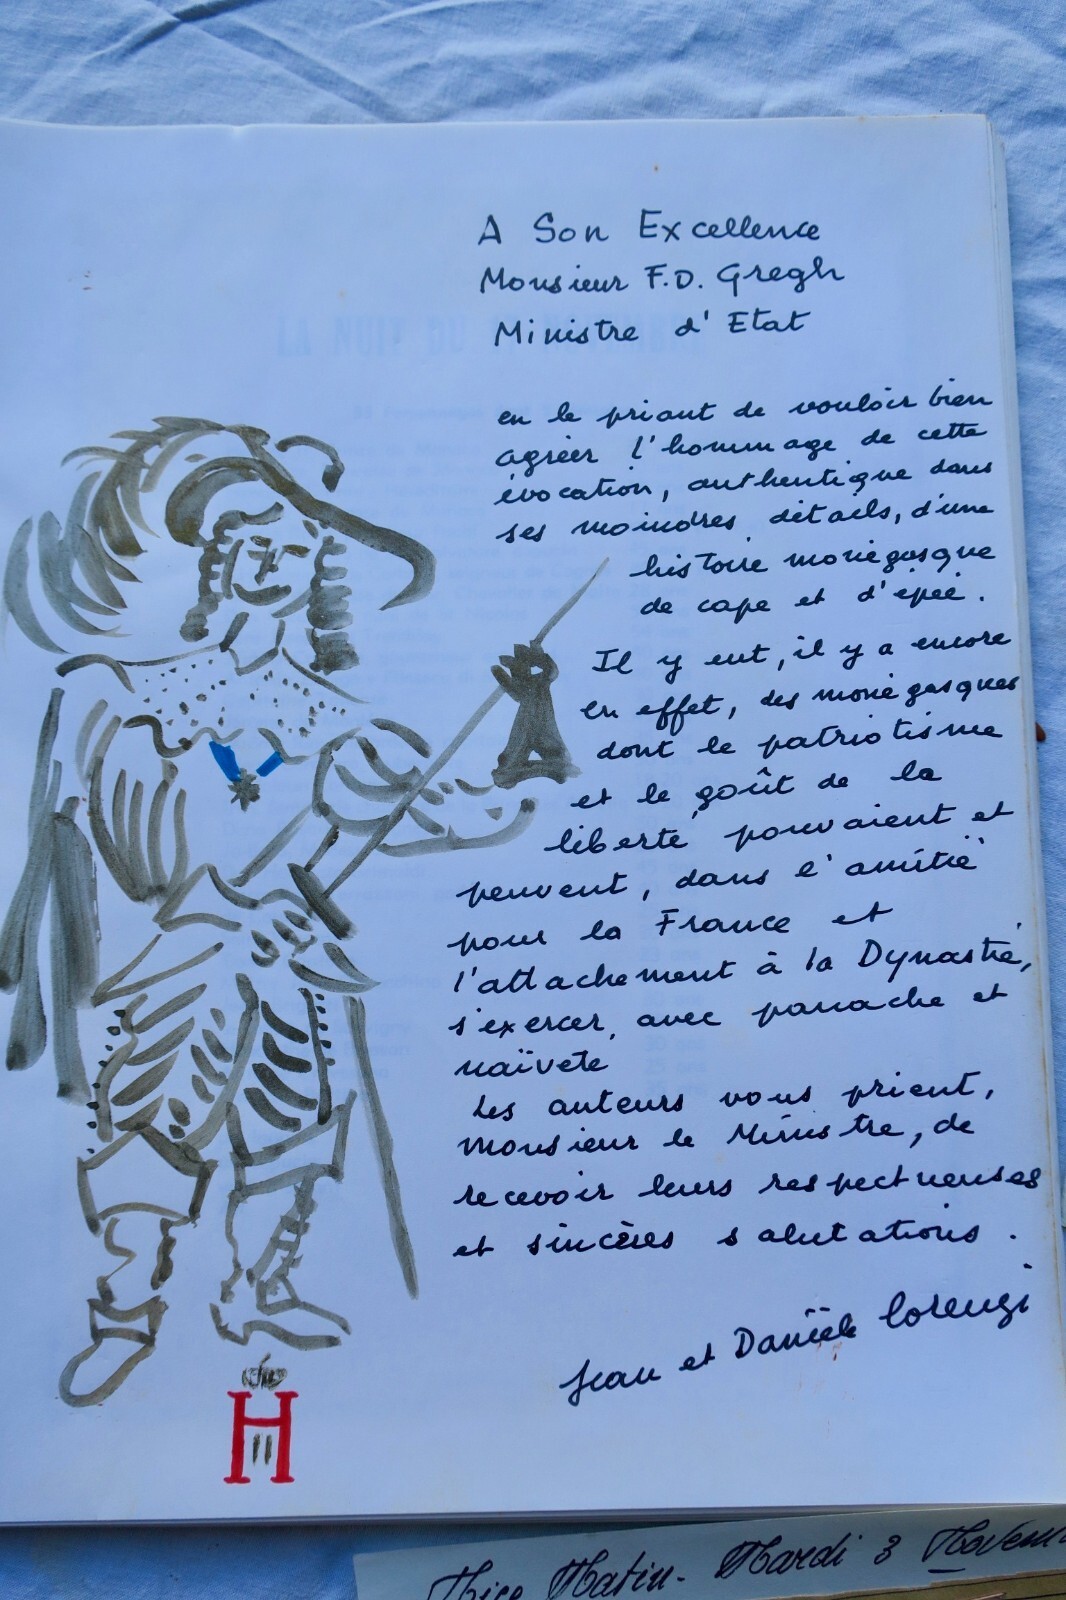 A Son Excellence
Monsieur F.D. Gregh
Ministre d'Etat
LA NUIT DU
en le priant de vouloir bien
agréer l'hommage de cette
évocation, authentique dans
ses moindres détails, d'une
histoire monégasque
de cape et d'épée.
Il y eut, il y a encore
en effet, des monégasques
dont le patriotisme
et le goût de la
liberté pouvaient et
peuvent, dans l'amitié
pour la France et
l'attachement à la Dynastie,
s'exercer, avec panache et
naïveté
Les auteurs vous prient,
Monsieur le Ministre, de
recevoir leurs respectueuses
et sincères salutations.
Jean et Danièle Lorenzi
H
II
Nice Matin - Mardi 3 Novem